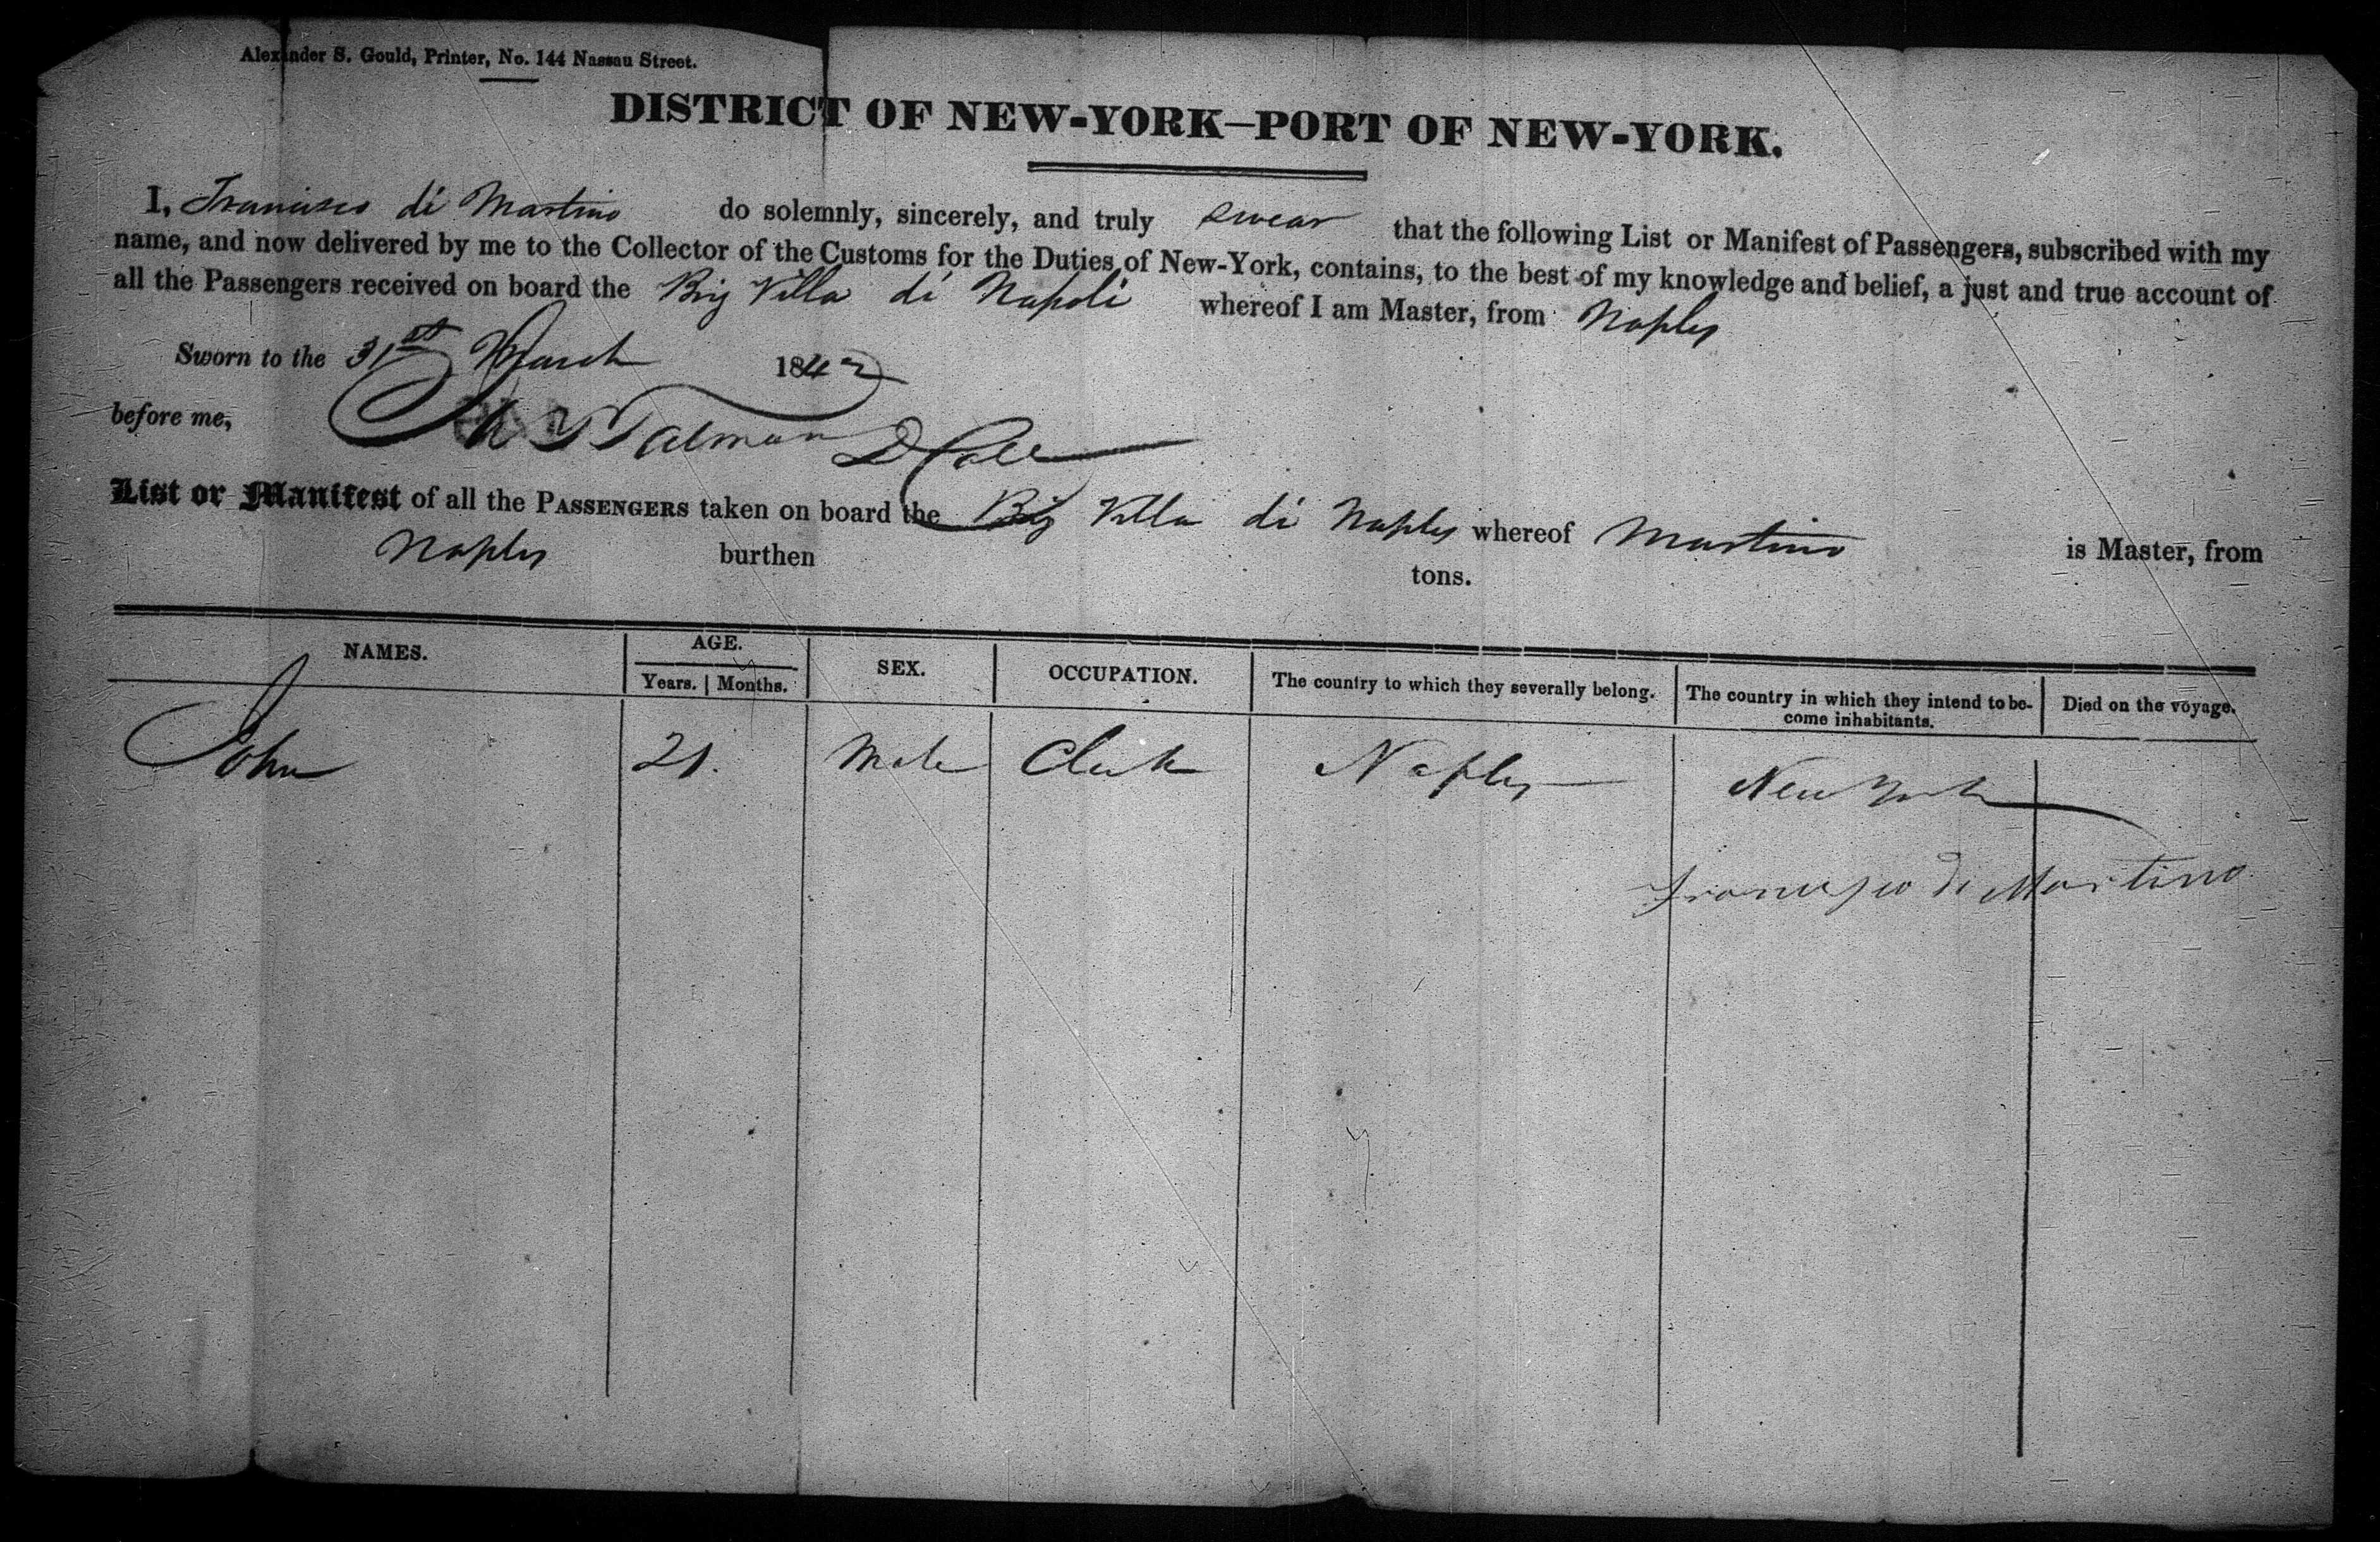 Alexander S. Gould, Printer, No. 144 Nassau Street.
DISTRICT OF NEW-YORK—PORT OF NEW-YORK.
I, Francisco di Martino do solemnly, sincerely, and truly swear that the following List or Manifest of Passengers, subscribed with my
name, and now delivered by me to the Collector of the Customs for the Duties of New-York, contains, to the best of my knowledge and belief, a just and true account of
all the Passengers received on board the Brig Villa di Napoli whereof I am Master, from Naples
Sworn to the 31st March 1842
before me, Talman D Coll
List or Manifest of all the PASSENGERS taken on board the Brig Villa di Naples whereof Martino is Master, from
Naples burthen tons.
NAMES. AGE. SEX. OCCUPATION. The country to which they severally belong. The country in which they intend to be- Died on the voyage.
Years. Months. come inhabitants.
John 21. Male Clerk Naples New York
Francesco di Martino